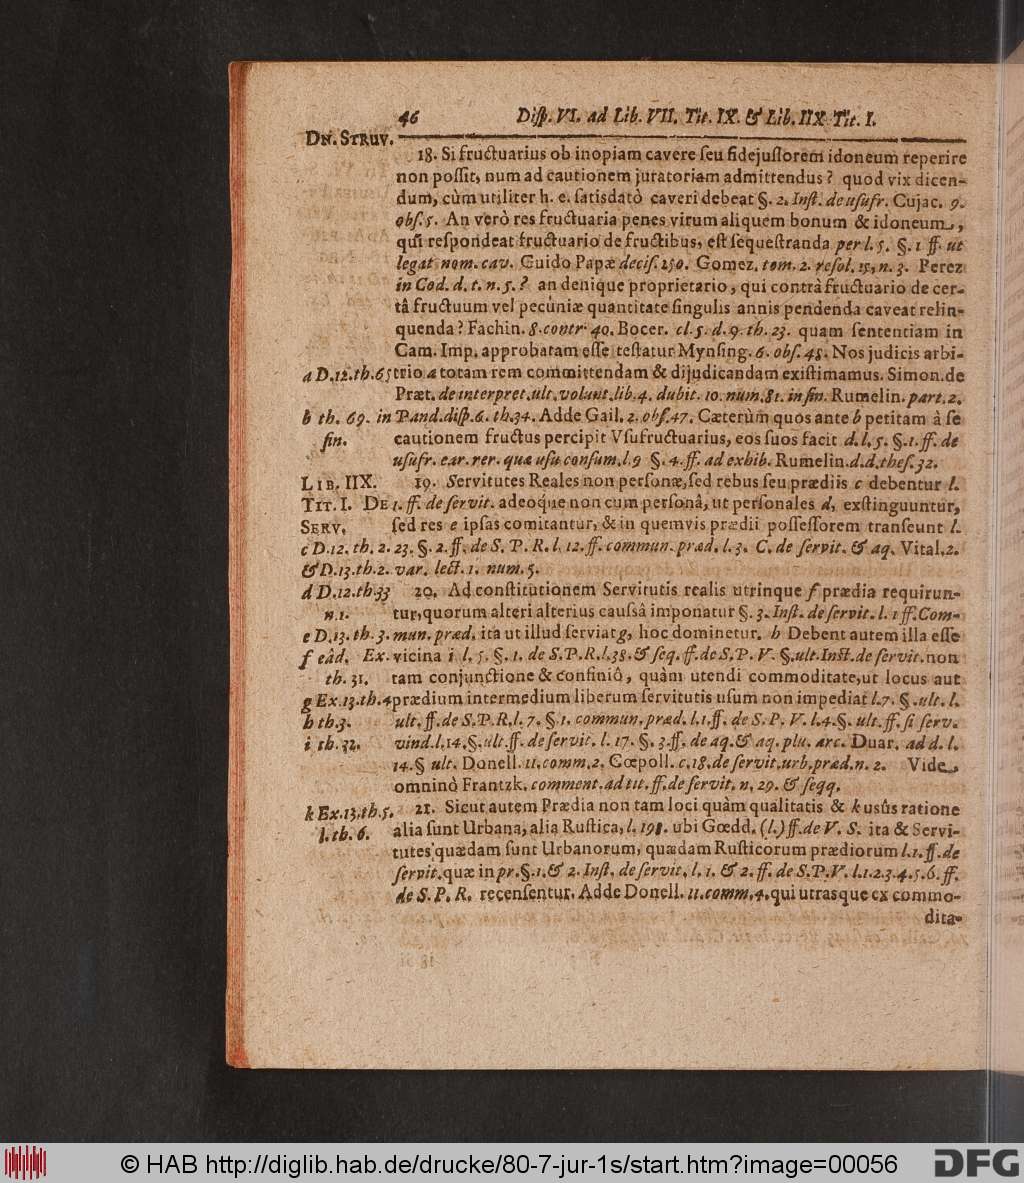 46 Disp. VI. ad Lib. VII. Tit. IX. & Lib. IIX Tit. I.
DN. STRUV.
18. Si fructuarius ob inopiam cavere seu fidejussorem idoneum reperire
non possit, num ad cautionem juratoriam admittendus? quod vix dicen-
dum, cùm utiliter h. e. satisdatò caveri debeat §. 2. Inst. de usufr. Cujac. 9.
obs. 5. An verò res fructuaria penes virum aliquem bonum & idoneum,
qui respondeat fructuario de fructibus, est sequestranda per l. 5. §. 1 ff. ut
legat. nom. cav. Guido Papæ decis. 250. Gomez. tom. 2. resol. 15, n. 3. Perez
in Cod. d. t. n. 5. ? an denique proprietario, qui contrà fructuario de cer-
tâ fructuum vel pecuniæ quantitate singulis annis pendenda caveat relin-
quenda? Fachin. 8. contr. 40. Bocer. cl. 5. d. 9. th. 23. quam sententiam in
Cam. Imp. approbatam esse testatur Mynsing. 6. obs. 48. Nos judicis arbi-
a D. 12. th. 65 trio a totam rem committendam & dijudicandam existimamus. Simon. de
Præt. de interpret. ult. volunt. lib. 4. dubit. 10. num. 81. in fin. Rumelin. part. 2.
b th. 69. in Pand. disp. 6. th. 34. Adde Gail. 2. obs. 47. Cæterùm quos ante b petitam à se
fin. cautionem fructus percipit Vsufructuarius, eos suos facit d. l. 5. §. 1. ff. de
usufr. ear. rer. quæ usu consum. l. 9 §. 4. ff. ad exhib. Rumelin. d. d. thes. 32.
LIB, IIX. 19. Servitutes Reales non personæ, sed rebus seu prædiis c debentur l.
TIT. I. DE 1. ff. de servit. adeoq́ue non cum personâ, ut personales d, exstinguuntur,
SERV. sed res e ipsas comitantur, & in quemvis prædii possessorem transeunt l.
c D. 12. th. 2. 23. §. 2. ff. de S. P. R. l. 12. ff. commun. præd. l. 3. C. de servit. & aq. Vital. 2.
& D. 13. th. 2. var. lect. 1. num. 5.
d D. 12. th 33 20. Ad constitutionem Servitutis realis utrinque f prædia requirun-
n. 1. tur, quorum alteri alterius caussâ imponatur §. 3. Inst. de servit. l. 1 ff. Com-
e D. 13. th. 3. mun. præd. ita ut illud serviat g, hoc dominetur. h Debent autem illa esse
f eâd. Ex. vicina i l. 5. §. 1. de S. P. R. l. 38. & seq. ff. de S. P. V. §. ult. Inst. de servit. non
th. 31. tam conjunctione & confiniô, quàm utendi commoditate, ut locus aut
g Ex. 13. th. 4 prædium intermedium liberum servitutis usum non impediat l. 7. §. ult. l.
h th. 3. ult. ff. de S. P. R. l. 7. §. 1. commun. præd. l. 1. ff. de S. P. V. l. 4. §. ult. ff. si serv.
i th. 32. vind. l. 14. §. ult. ff. de servit. l. 17. §. 3. ff. de aq. & aq. plu. arc. Duar. ad d. l.
14. § ult. Donell. 11. comm. 2. Cœpoll. c. 18. de servit. urb. præd. n. 2. Vide,
omninò Frantzk. comment. ad tit. ff. de servit. n. 29. & seqq.
k Ex. 13. th. 5. 21. Sicut autem Prædia non tam loci quàm qualitatis & k usûs ratione
l. th. 6. alia sunt Urbana, alia Rustica, l. 198. ubi Gœdd. (l.) ff. de V. S. ita & Servi-
tutes quædam sunt Urbanorum, quædam Rusticorum prædiorum l. 1. ff. de
servit. quæ in pr. §. 1. & 2. Inst. de servit. l. 1. & 2. ff. de S. P. V. l. 1. 2. 3. 4. 5. 6. ff.
de S. P. R. recensentur. Adde Donell. 11. comm. 4. qui utrasque ex commo-
dita-
© HAB http://diglib.hab.de/drucke/80-7-jur-1s/start.htm?image=00056 DFG